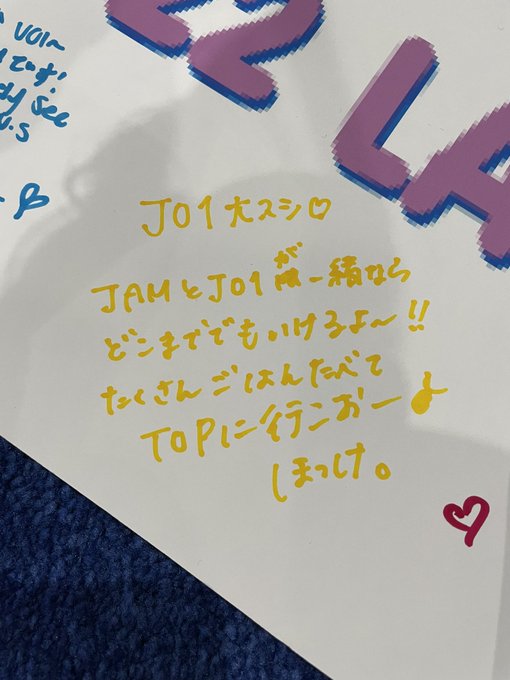 VOI〜
です!
See
22 LA
JO1大スシ♡
JAMとJO1が一緒なら
どこまででもいけるよ〜!!
たくさんごはんたべて
TOPに行こおー
ほっけ。